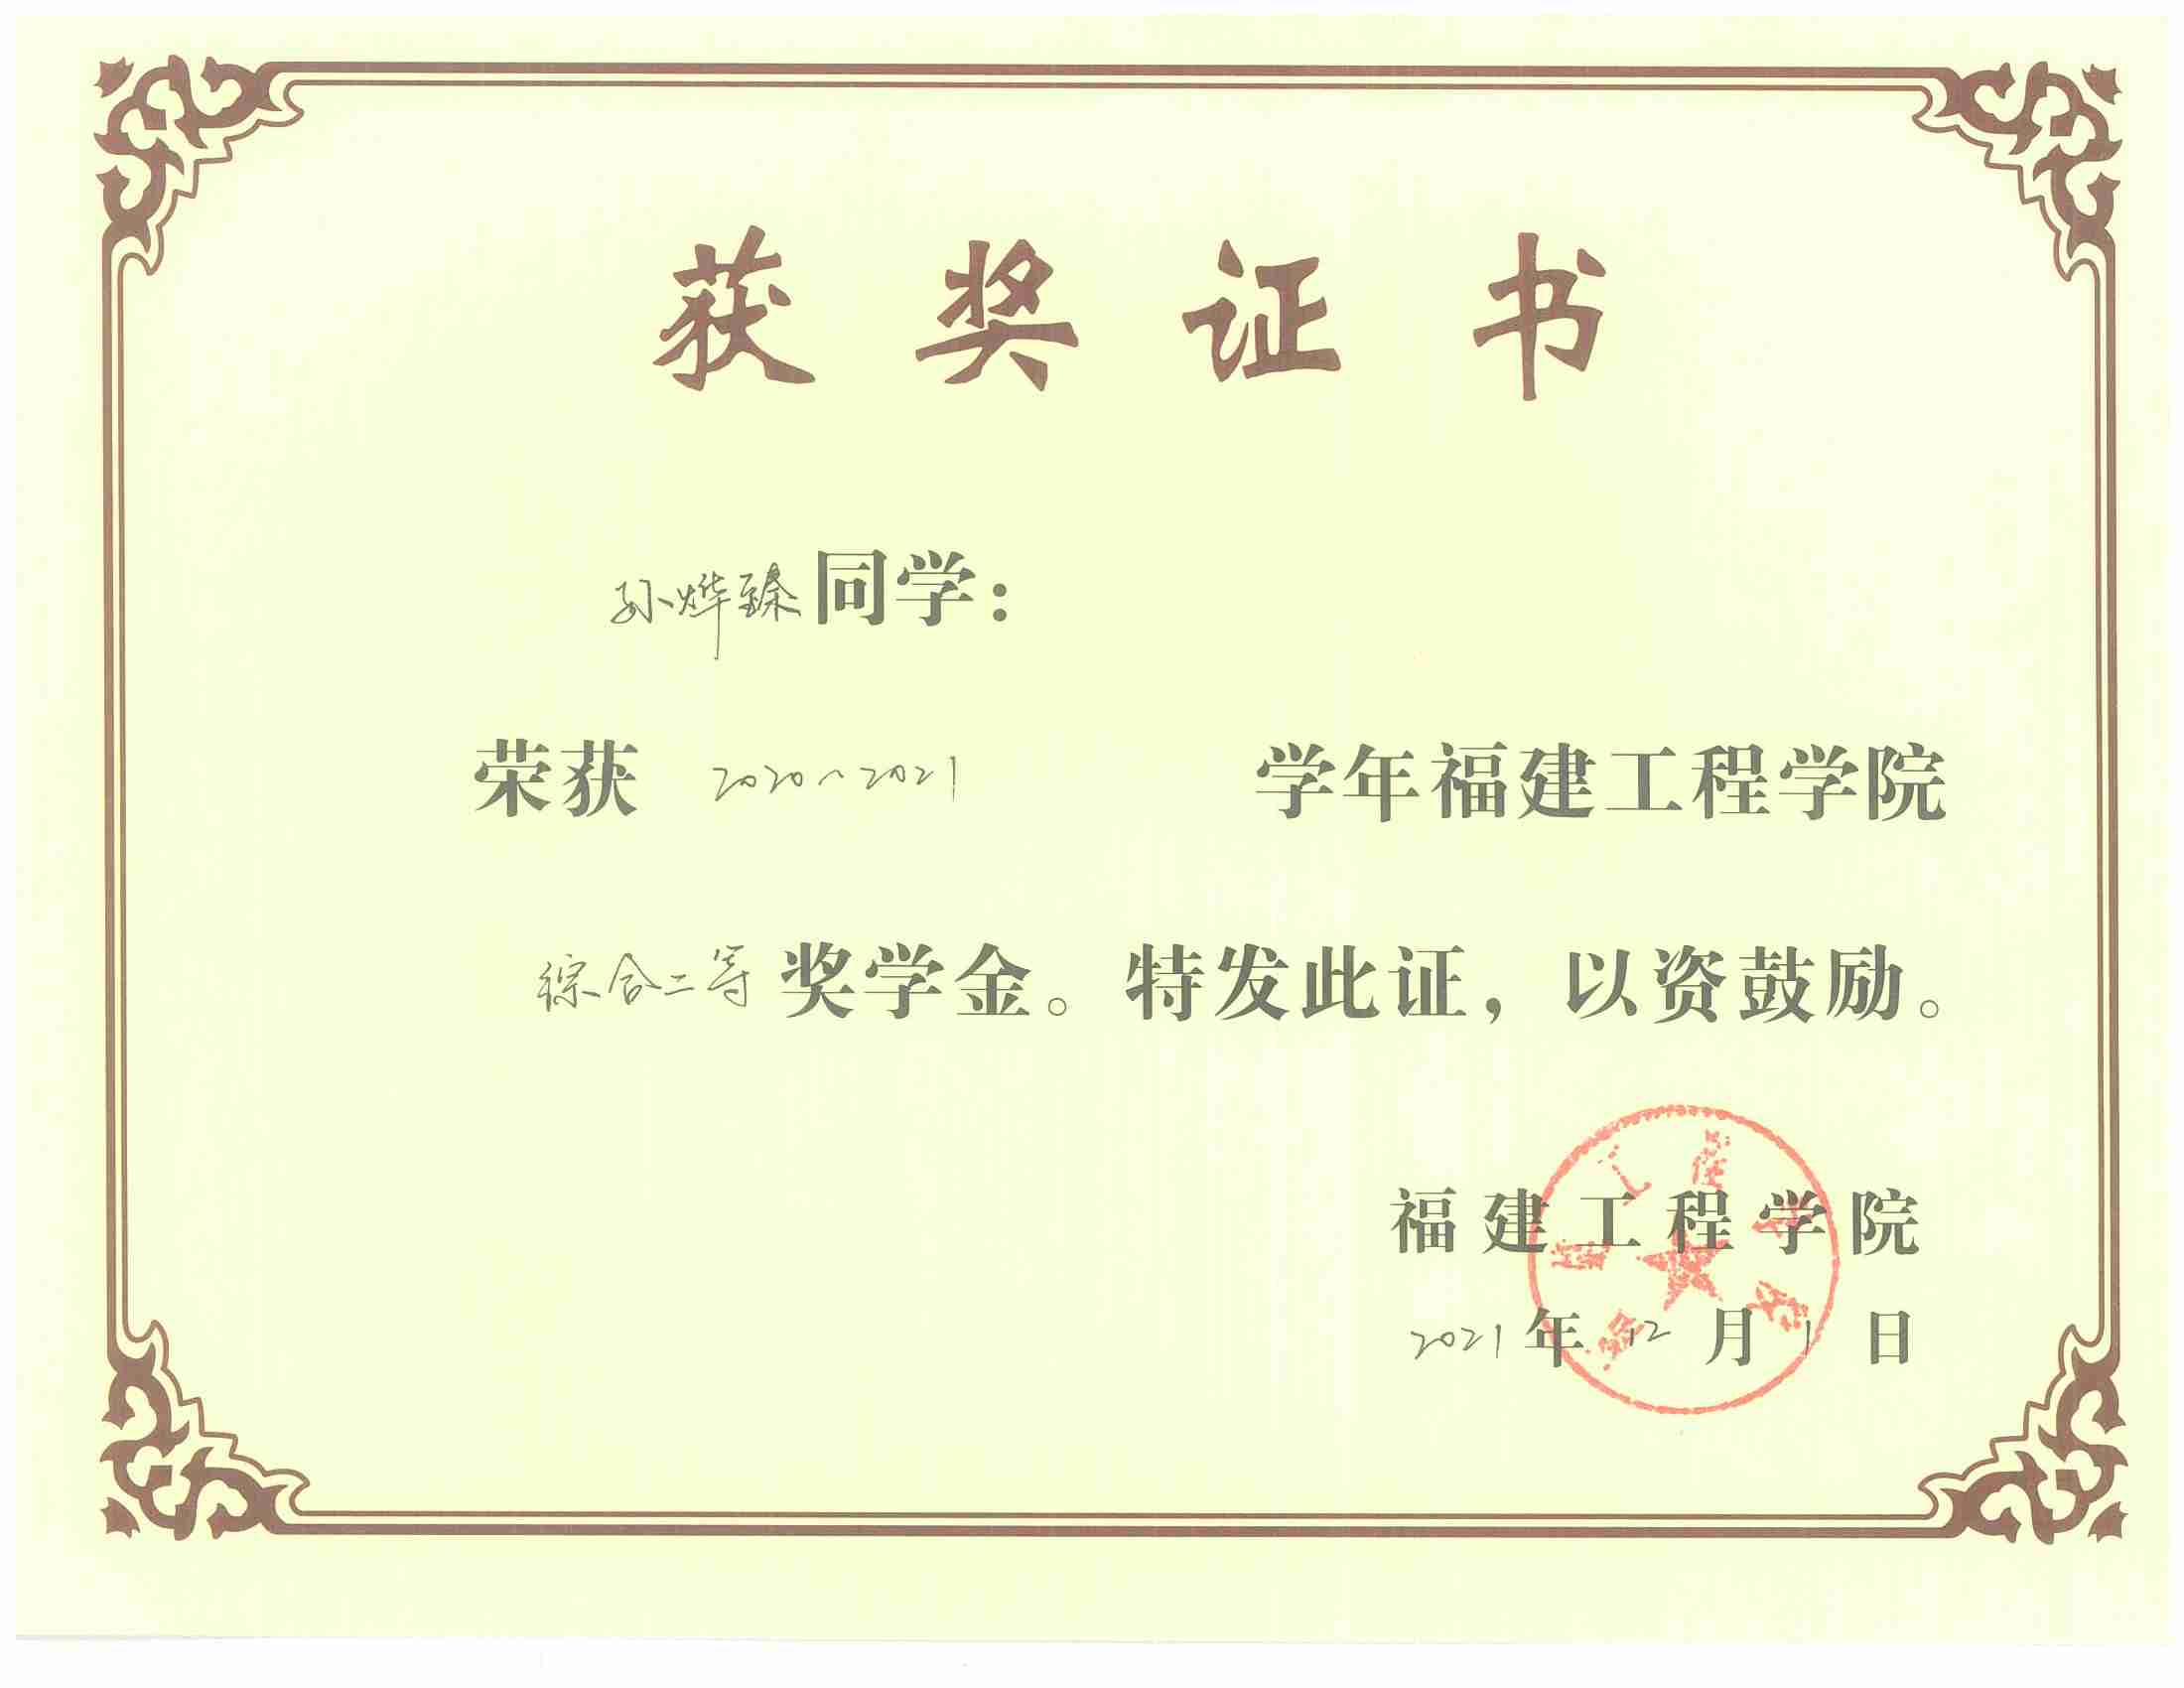 获奖证书
孙烨臻同学：
荣获 2020~2021 学年福建工程学院
综合二等奖学金。特发此证，以资鼓励。
福建工程学院
2021年12月1日